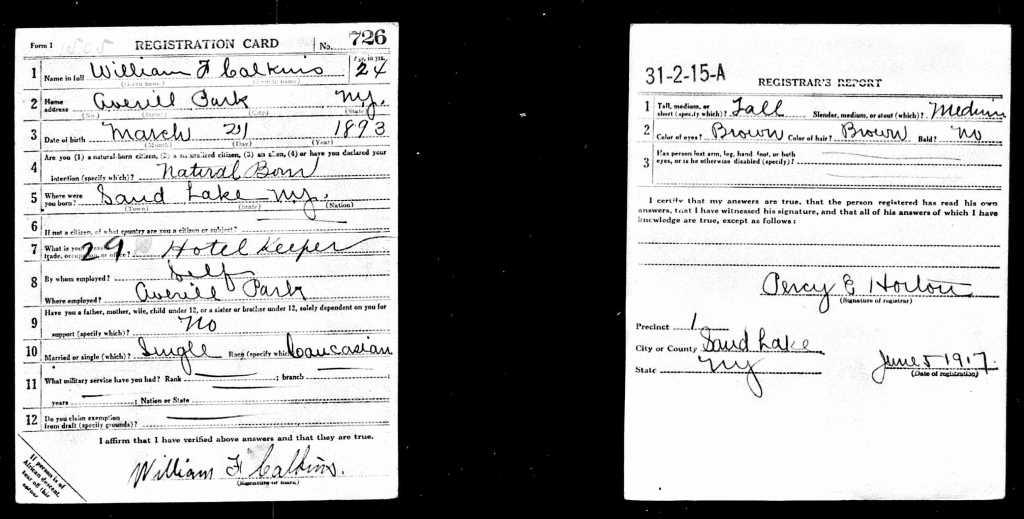 Form 1 1505 REGISTRATION CARD No. 726
1 Name in full William F Calkins Age, in yrs. 24
(Given name) (Family name)
2 Home address Averill Park N.Y.
(No.) (Street) (City) (State)
3 Date of birth March 21 1893
(Month) (Day) (Year)
4 Are you (1) a natural-born citizen, (2) a naturalized citizen, (3) an alien, (4) or have you declared your
intention (specify which)? Natural Born
5 Where were you born? Sand Lake N.Y.
(Town) (State) (Nation)
6 If not a citizen, of what country are you a citizen or subject?
7 What is your present trade, occupation, or office? 29. Hotel Keeper
8 By whom employed? Self
Where employed? Averill Park
9 Have you a father, mother, wife, child under 12, or a sister or brother under 12, solely dependent on you for
support (specify which)? No
10 Married or single (which)? Single Race (specify which)? Caucasian
11 What military service have you had? Rank ; branch
years ; Nation or State
12 Do you claim exemption from draft (specify grounds)?
I affirm that I have verified above answers and that they are true.
William F Calkins.
(Signature or mark)
If person is of
African descent,
tear off this
corner
31-2-15-A
REGISTRAR'S REPORT
1 Tall, medium, or short (specify which)? Tall Slender, medium, or stout (which)? Medium
2 Color of eyes? Brown Color of hair? Brown Bald? No
3 Has person lost arm, leg, hand, foot, or both
eyes, or is he otherwise disabled (specify)?
I certify that my answers are true, that the person registered has read his own
answers, that I have witnessed his signature, and that all of his answers of which I have
knowledge are true, except as follows:
Percy E Horton
(Signature of registrar)
Precinct 1
City or County Sand Lake
State NY
June 5 1917.
(Date of registration)